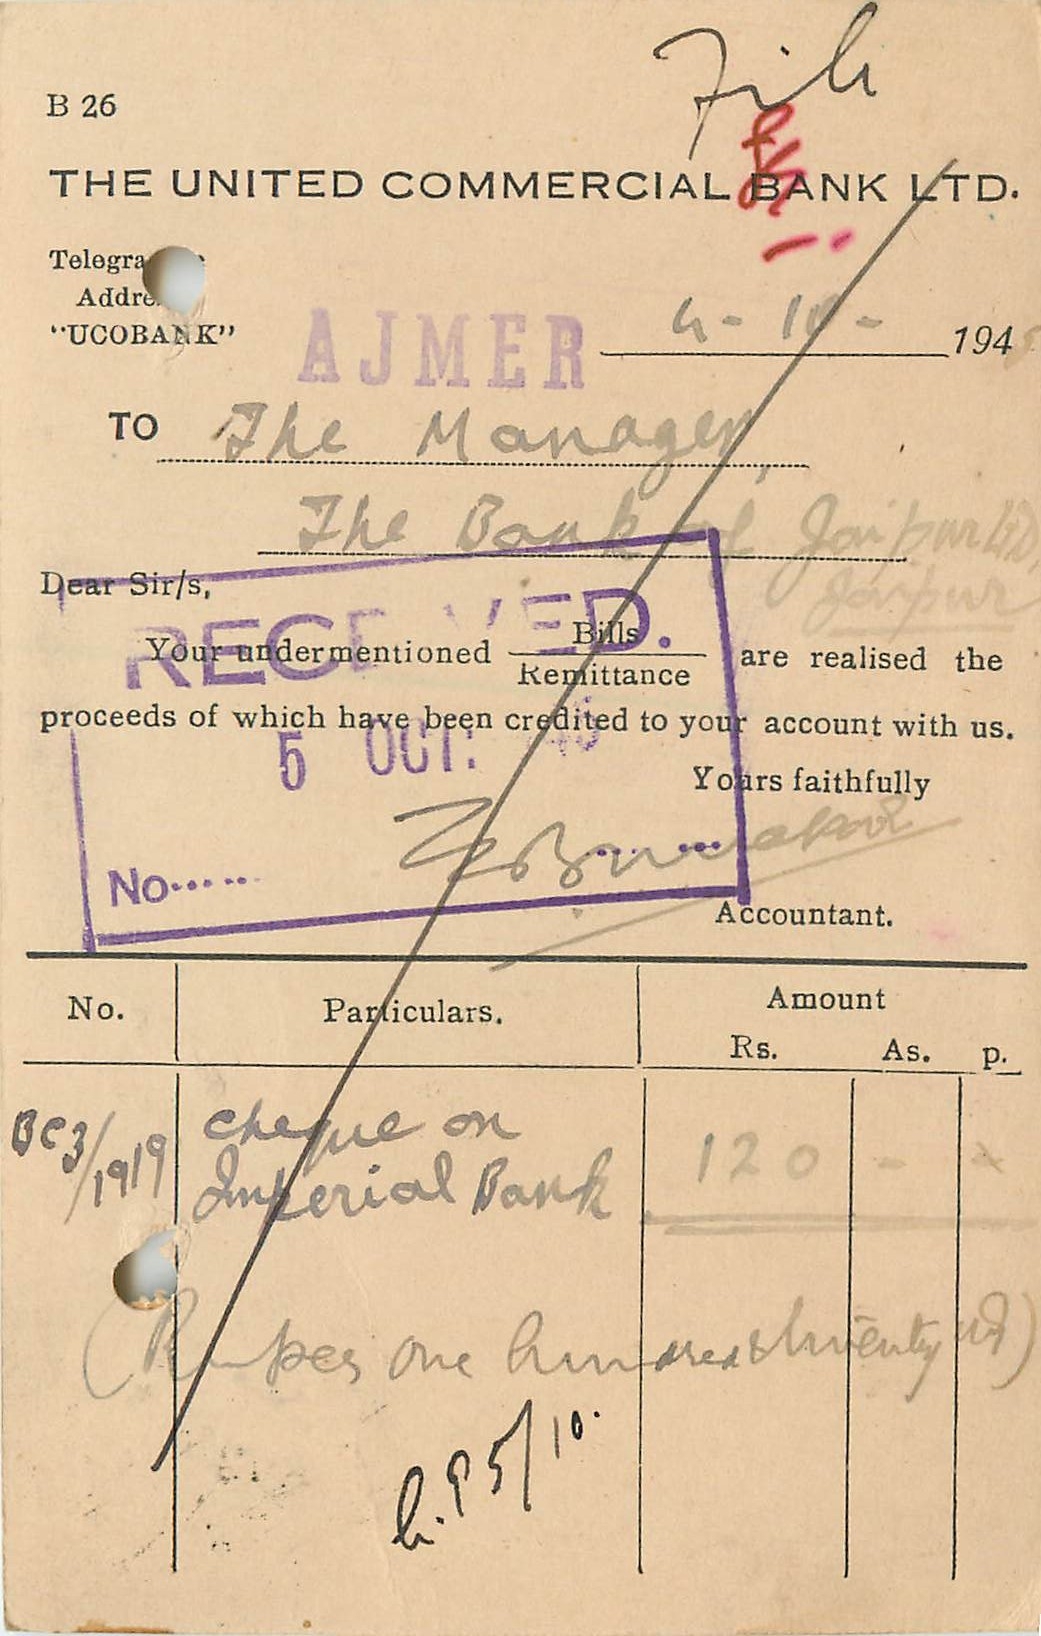 B 26
THE UNITED COMMERCIAL BANK LTD.
Telegra
Addre
"UCOBANK"
AJMER
4-10- 1945
TO The Manager,
The Bank of Jaipur Ltd,
Jaipur
Dear Sir/s,
RECEIVED.
Your undermentioned Bills are realised the
Remittance
proceeds of which have been credited to your account with us.
5 OCT: 45
Yours faithfully
No......
Accountant.
No. Particulars. Amount
Rs. As. p.
BC3/1919 Cheque on 120 - -
Imperial Bank
(Rupees one hundred & twenty only)
5/10.